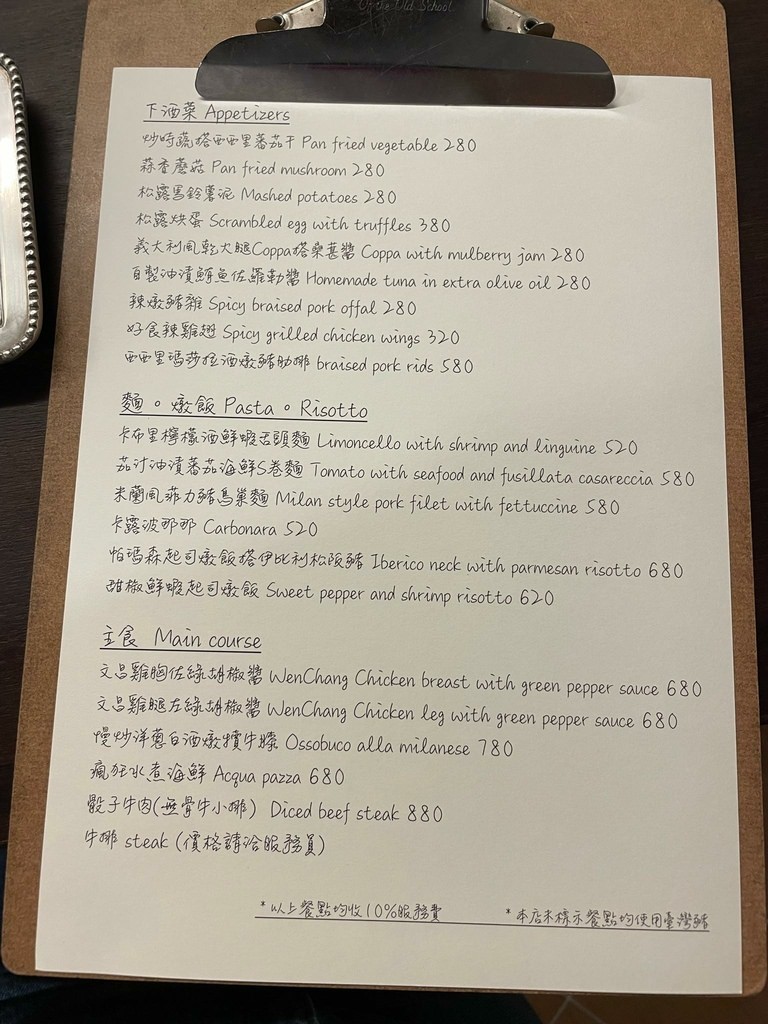 Of the Old School
下酒菜 Appetizers
炒時蔬搭西西里蕃茄干 Pan fried vegetable 280
蒜香蘑菇 Pan fried mushroom 280
松露馬鈴薯泥 Mashed potatoes 280
松露烘蛋 Scrambled egg with truffles 380
義大利風乾火腿Coppa搭桑葚醬 Coppa with mulberry jam 280
自製油漬鮪魚佐羅勒醬 Homemade tuna in extra olive oil 280
辣燉豬雜 Spicy braised pork offal 280
好食辣雞翅 Spicy grilled chicken wings 320
西西里瑪莎拉酒燉豬肋排 braised pork rids 580
麵。燉飯 Pasta。Risotto
卡布里檸檬酒鮮蝦舌頭麵 Limoncello with shrimp and linguine 520
茄汁油漬蕃茄海鮮S卷麵 Tomato with seafood and fusillata casareccia 580
米蘭風菲力豬鳥巢麵 Milan style pork filet with fettuccine 580
卡露波那那 Carbonara 520
帕瑪森起司燉飯搭伊比利松阪豬 Iberico neck with parmesan risotto 680
甜椒鮮蝦起司燉飯 Sweet pepper and shrimp risotto 620
主食 Main course
文昌雞胸佐綠胡椒醬 WenChang Chicken breast with green pepper sauce 680
文昌雞腿左綠胡椒醬 WenChang Chicken leg with green pepper sauce 680
慢炒洋蔥白酒燉犢牛膝 Ossobuco alla milanese 780
瘋狂水煮海鮮 Acqua pazza 680
骰子牛肉(無骨牛小排) Diced beef steak 880
牛排 steak (價格請洽服務員)
*以上餐點均收10%服務費 *本店未標示餐點均使用臺灣豬